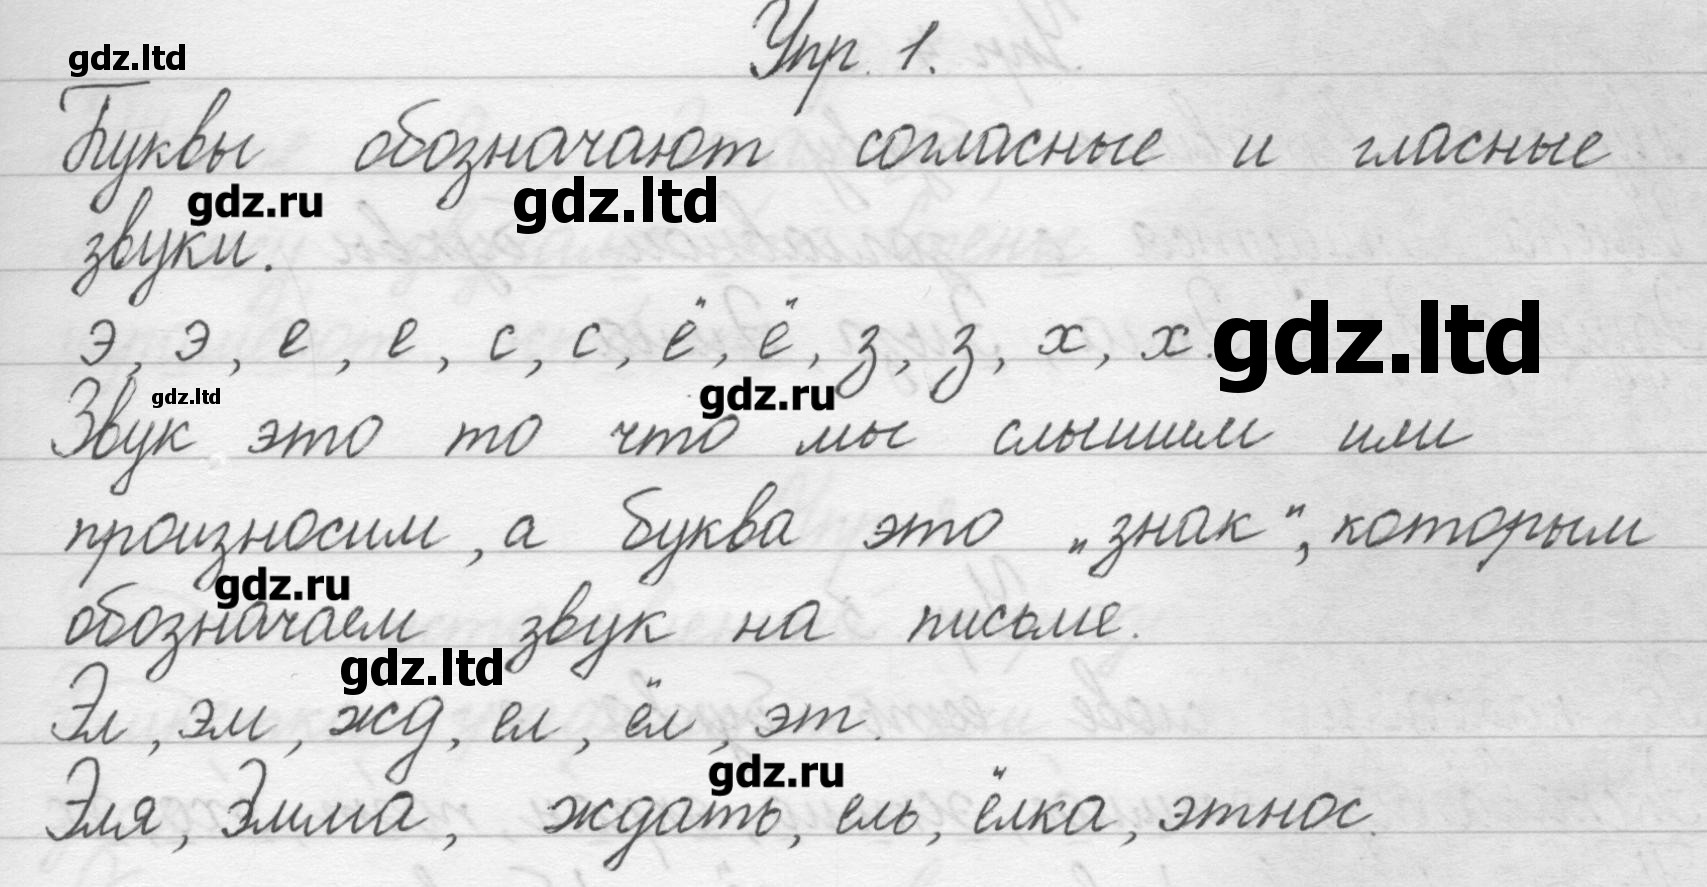 Упр. 1.
gdz.ltd
Буквы обозначают согласные и гласные
gdz.ru gdz.ltd
звуки.
э, э, е, е, с, с, ё, ё, з, з, х, х. gdz.ltd
gdz.ltd gdz.ru
Звук это то что мы слышим или
произносим, а буква это „знак", которым
gdz.ru
обозначаем звук на письме.
gdz.ltd
Эл, эм, жд, ел, ёл, эт.
gdz.ru
Эля, Эмма, ждать, ель, ёлка, этнос.